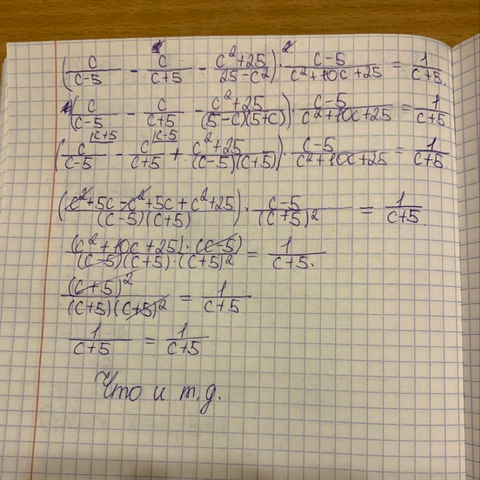 (c/(c-5) - c/(c+5) - (c²+25)/(25-c²)) · (c-5)/(c²+10c+25) = 1/(c+5).
(c/(c-5) - c/(c+5) - (c²+25)/((5-c)(5+c))) · (c-5)/(c²+10c+25) = 1/(c+5)
(c|c+5/(c-5) - c|c-5/(c+5) + (c²+25)/((c-5)(c+5))) · (c-5)/(c²+10c+25) = 1/(c+5)
((c²+5c-c²+5c+c²+25)/((c-5)(c+5))) · (c-5)/(c+5)² = 1/(c+5).
((c²+10c+25)·(c-5))/((c-5)(c+5)·(c+5)²) = 1/(c+5).
(c+5)²/((c+5)(c+5)²) = 1/(c+5)
1/(c+5) = 1/(c+5)
Что и т.д.